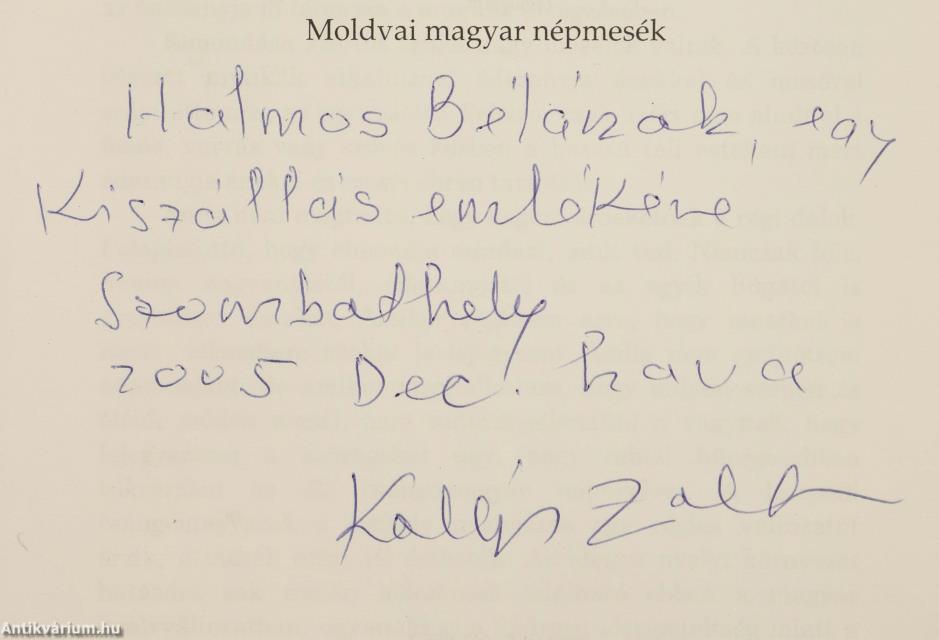 Moldvai magyar népmesék
Halmos Bélának, egy
Kiszállás emlékére
Szombathely
2005 Dec. hava
Kallós Zoltán
Antikvárium.hu